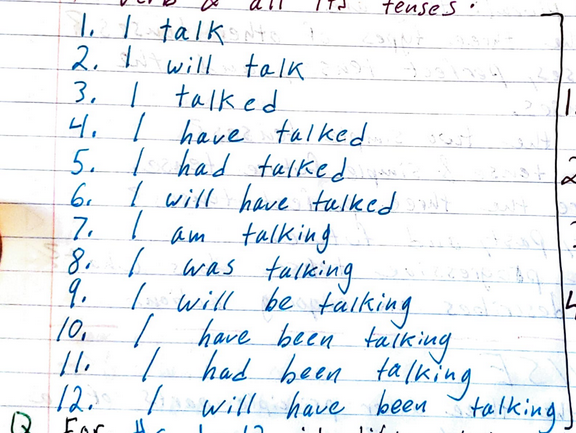 verb & all its tenses.
1. I talk
2. I will talk
3. I talked
4. I have talked
5. I had talked
6. I will have talked
7. I am talking
8. I was talking
9. I will be talking
10. I have been talking
11. I had been talking
12. I will have been talking
Q For